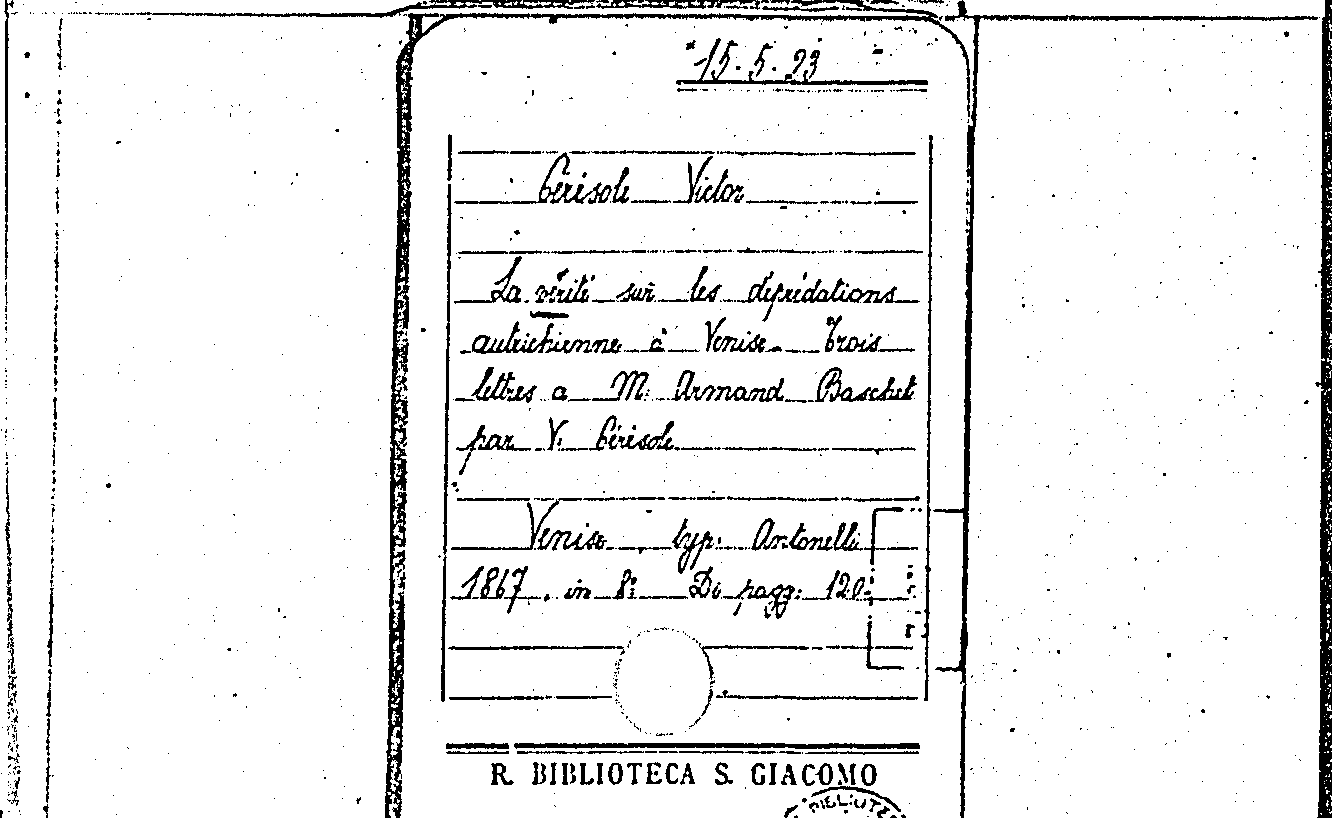 15.5.23
Cérisole Victor
La vérité sur les déprédations
autrichienne à Venise. Trois
lettres a M. Armand Baschet
par V. Cérisole
Venise, typ. Antonelli
1867, in 8: Di pagg: 120
R. BIBLIOTECA S. GIACOMO